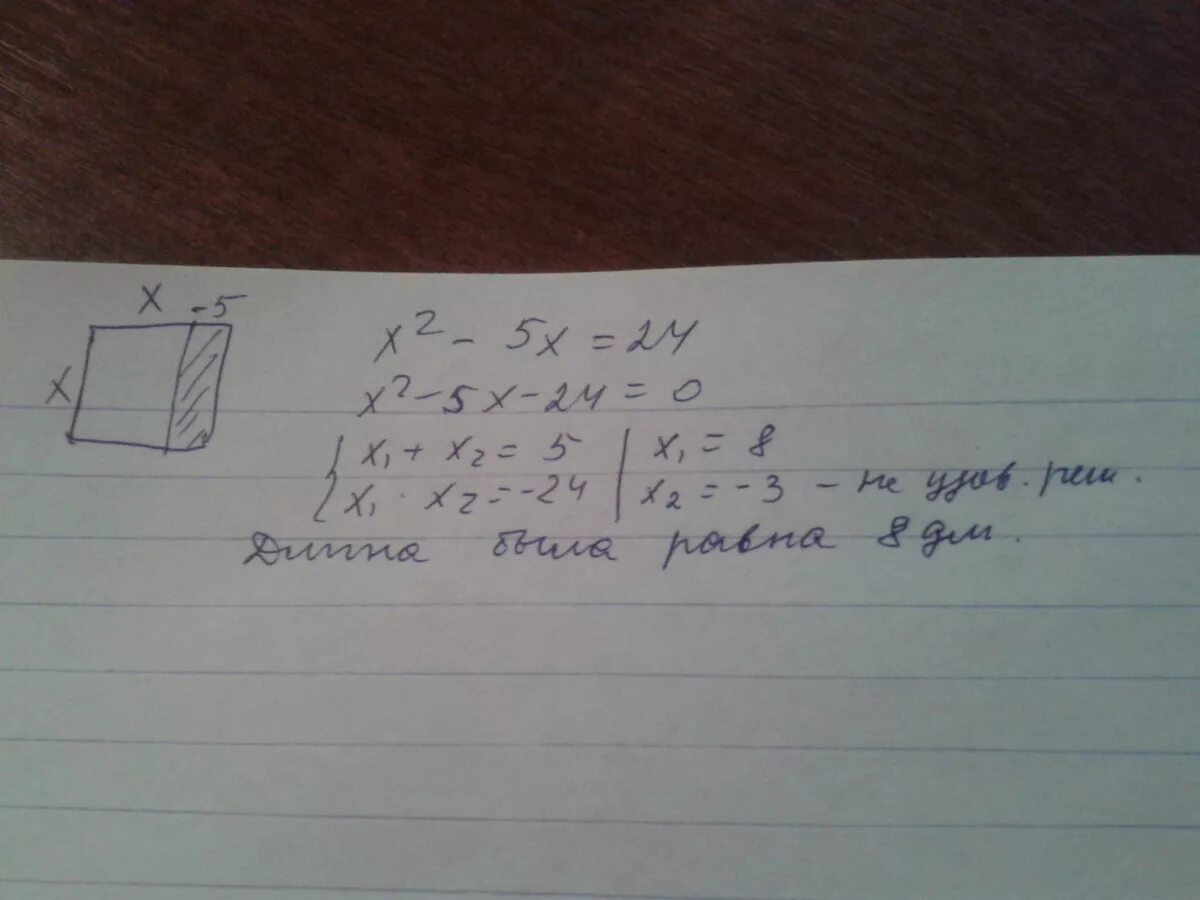 x -5
x
x² - 5x = 24
x² - 5x - 24 = 0
{ x₁ + x₂ = 5 | x₁ = 8
x₁ · x₂ = -24 | x₂ = -3 - не удов. реш.
Длина была равна 8 дм.